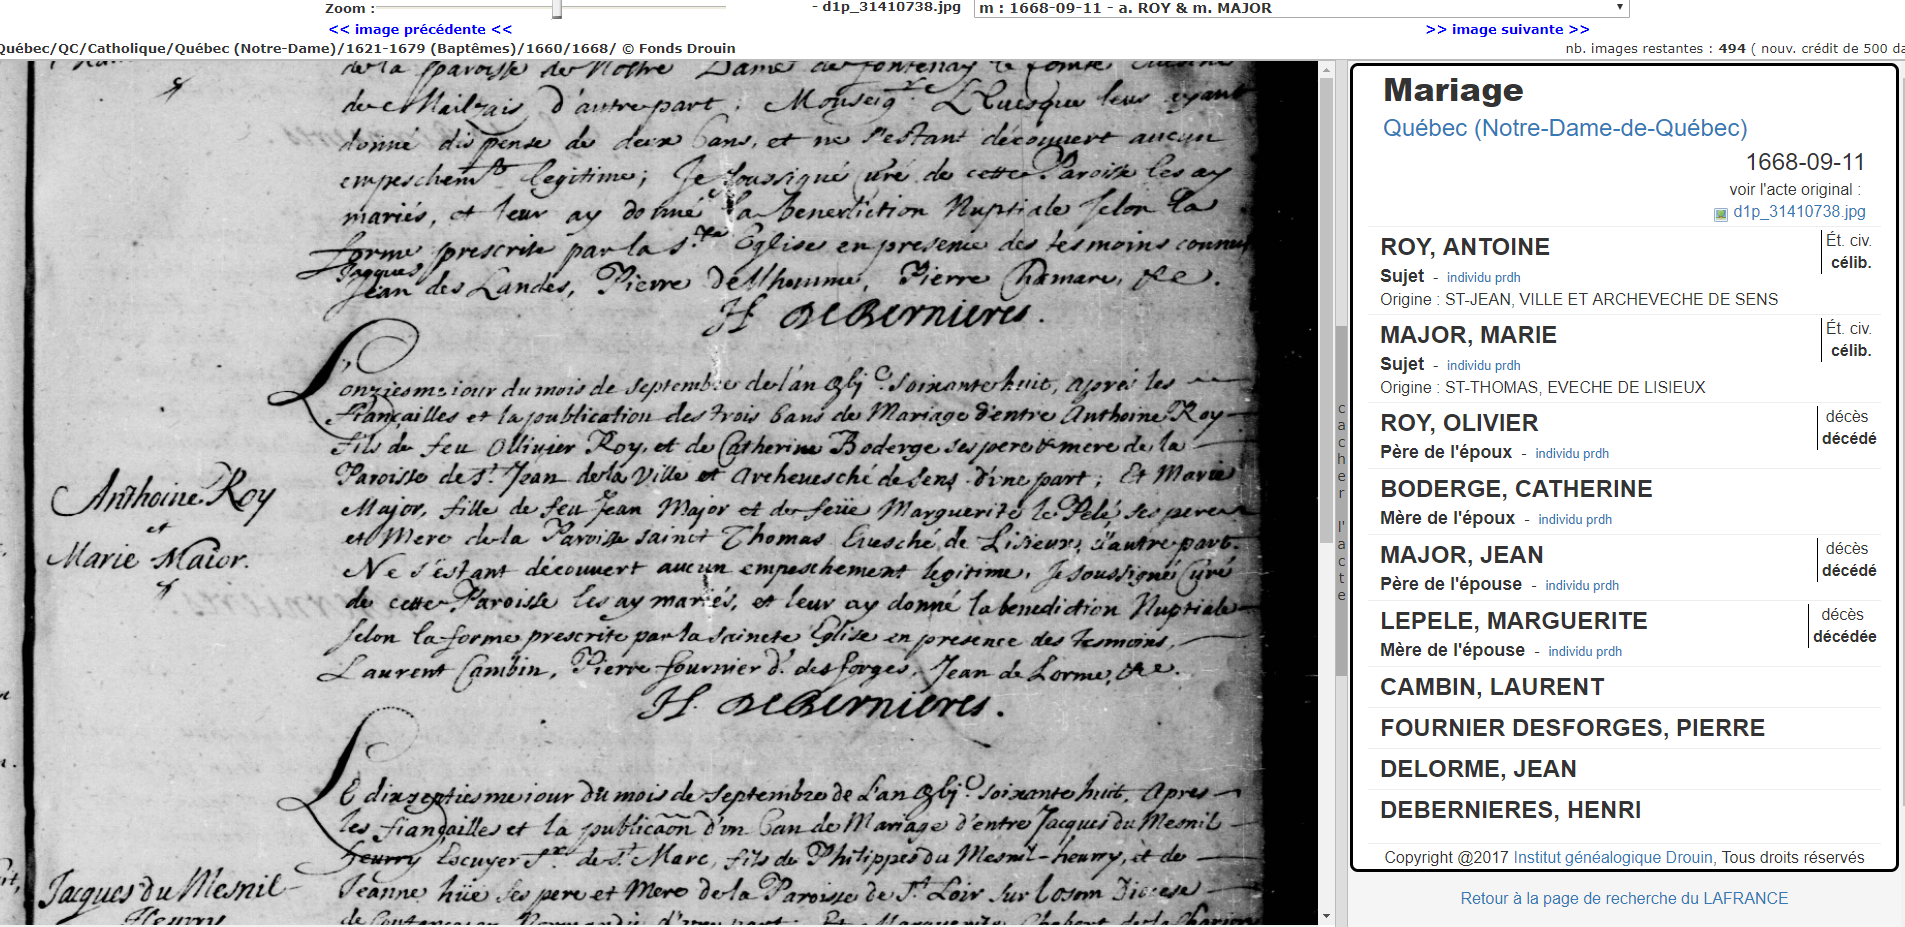 Zoom :
- d1p_31410738.jpg
m : 1668-09-11 - a. ROY & m. MAJOR
<< image précédente <<
>> image suivante >>
Québec/QC/Catholique/Québec (Notre-Dame)/1621-1679 (Baptêmes)/1660/1668/ © Fonds Drouin
nb. images restantes : 494 ( nouv. crédit de 500 da
de la paroisse de Nostre Dame de fontenay le Comte
de Mailzais d'autre part; Monseigr. L'Euesque leur ayant
donné dispense de deux bans, et ne s'estant découvert aucun
empeschemt. legitime; Je soussigné Curé de cette Paroisse les ay
mariés, et leur ay donné la benediction Nuptiale selon la
forme prescrite par la Ste. Eglise en presence des tesmoins connus
Jacques
Jean des Landes, Pierre Pierre Chamare, &c.
H. DeBernieres.
L'onziesme jour du mois de septembre de l'an soixante huit, aprés les
fiançailles et la publication des trois bans de Mariage d'entre Anthoine Roy
fils de feu Ollivier Roy, et de Catherine Boderge ses pere & mere de la
Paroisse de St. Jean de la Ville et Archeuesché de Sens d'vne part; Et Marie
Major, fille de feu Jean Major et de feüe Marguerite le Pelé ses pere
et Mere de la Paroisse sainct Thomas Euesché de Lisieux, d'autre part.
Ne s'estant découvert aucun empeschement legitime, Je soussigné Curé
de cette Paroisse les ay mariés, et leur ay donné la benediction Nuptiale
selon la forme prescrite par la saincte Eglise en presence des tesmoins,
Laurent Cambin, Pierre fournier d. des forges, Jean de Lorme, &c.
H. DeBernieres.
Anthoine Roy
et
Marie Maior.
Le dixseptiesme jour du mois de Septembre de L'an soixante huit, Apres
les fiançailles et la publicaõn d'vn ban de Mariage d'entre Jacques du Mesnil
heurry Escuyer Sr. de St. Marc, fils de Philippes du Mesnil-heurry, et de
Jeanne hüe ses pere et Mere de la Paroisse de St. Loir sur Diocese
Jacques du Mesnil-
Heurry
Mariage
Québec (Notre-Dame-de-Québec)
1668-09-11
voir l'acte original :
d1p_31410738.jpg
ROY, ANTOINE
Ét. civ.
célib.
Sujet - individu prdh
Origine : ST-JEAN, VILLE ET ARCHEVECHE DE SENS
MAJOR, MARIE
Ét. civ.
célib.
Sujet - individu prdh
Origine : ST-THOMAS, EVECHE DE LISIEUX
ROY, OLIVIER
décès
décédé
Père de l'époux - individu prdh
BODERGE, CATHERINE
Mère de l'époux - individu prdh
MAJOR, JEAN
décès
décédé
Père de l'épouse - individu prdh
LEPELE, MARGUERITE
décès
décédée
Mère de l'épouse - individu prdh
CAMBIN, LAURENT
FOURNIER DESFORGES, PIERRE
DELORME, JEAN
DEBERNIERES, HENRI
Copyright @2017 Institut généalogique Drouin, Tous droits réservés
Retour à la page de recherche du LAFRANCE
cacher l'acte